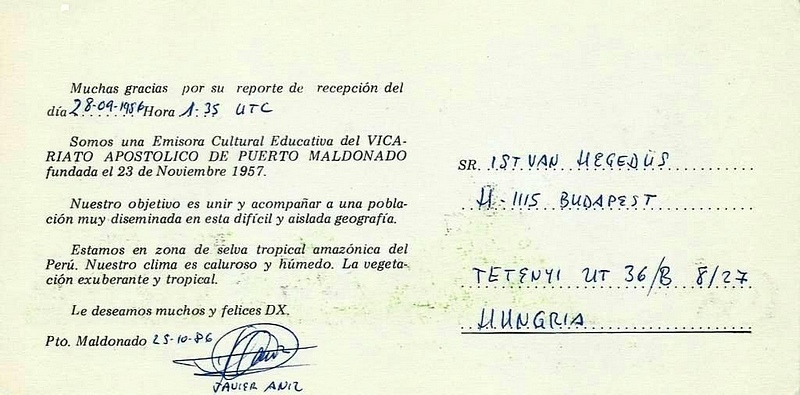 Muchas gracias por su reporte de recepción del
día 28-09-1986 Hora 1.35 UTC
Somos una Emisora Cultural Educativa del VICA-
RIATO APOSTOLICO DE PUERTO MALDONADO
fundada el 23 de Noviembre 1957.
Nuestro objetivo es unir y acompañar a una pobla-
ción muy diseminada en esta difícil y aislada geografía.
Estamos en zona de selva tropical amazónica del
Perú. Nuestro clima es caluroso y húmedo. La vegeta-
ción exuberante y tropical.
Le deseamos muchos y felices DX.
Pto. Maldonado 25-10-86
JAVIER ANIZ
SR. ISTVAN HEGEDÜS
H-1115 BUDAPEST
TETENYI UT 36/B 8/27
HUNGRIA